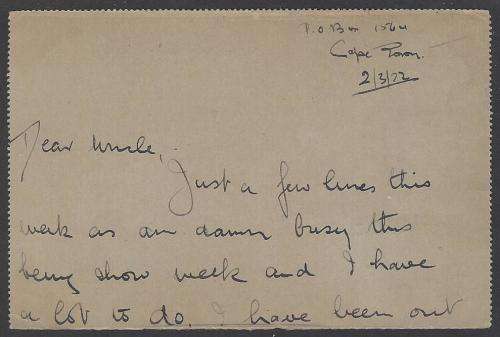 P.O Box 1564
Cape Town.
2/3/22
Dear Uncle,
Just a few lines this
week as am damn busy this
being show week and I have
a lot to do. I have been out